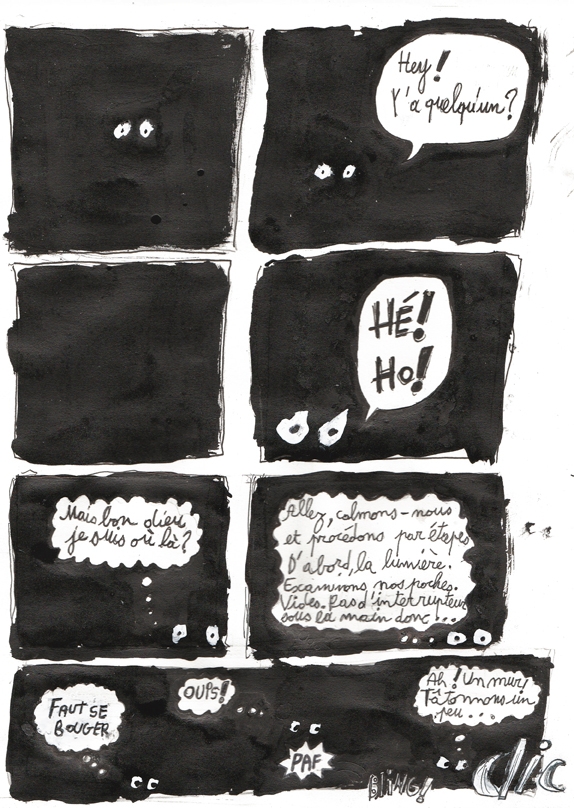 Hey!
Y'a quelqu'un?
HÉ!
Ho!
Mais bon dieu
je suis où là?
Allez, calmons-nous
et procédons par étapes
D'abord, la lumière.
Examinons nos poches.
Vides. Pas d'interrupteur
sous la main donc...
FAUT SE
BOUGER
OUPS!
PAF
Ah! Un mur!
Tâtonnons un
peu...
BLING!
clic